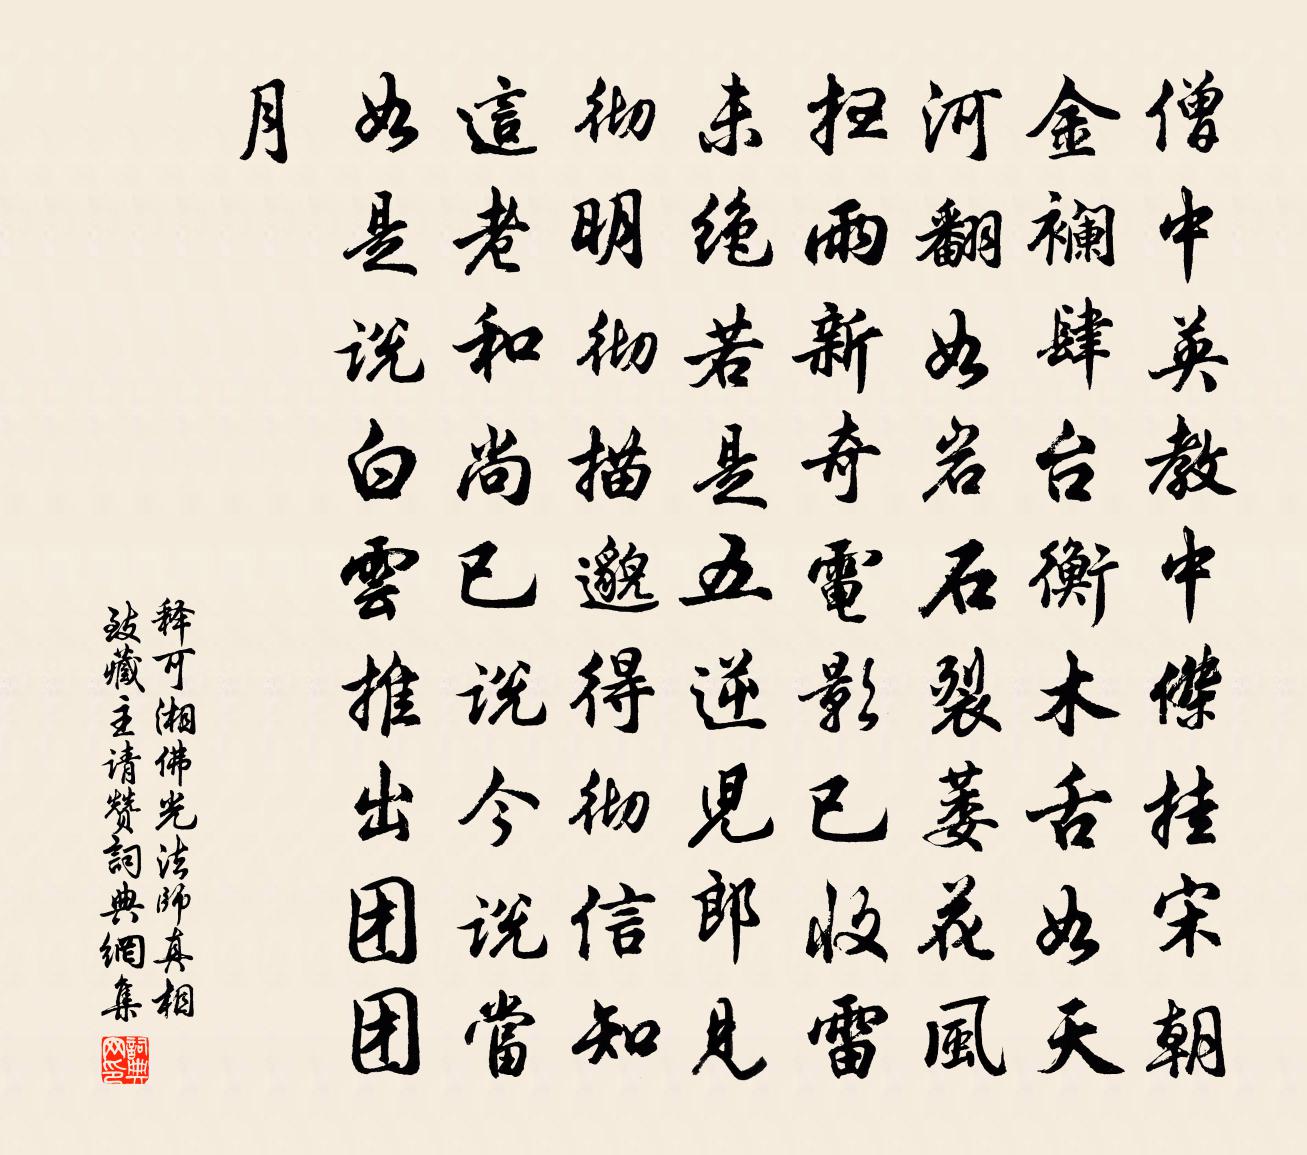 僧中英教中傑挂宋朝
金襕肆台衡木舌如天
河翻如岩石裂萎花風
抂雨新奇電影已收雷
未绝若是五逆児郎見
彻明彻描邈得彻信知
這老和尚已说今说當
如是说白雲推出团团
月
释可湘佛光法師真相
致藏主请赞詞典網集
詞典网印